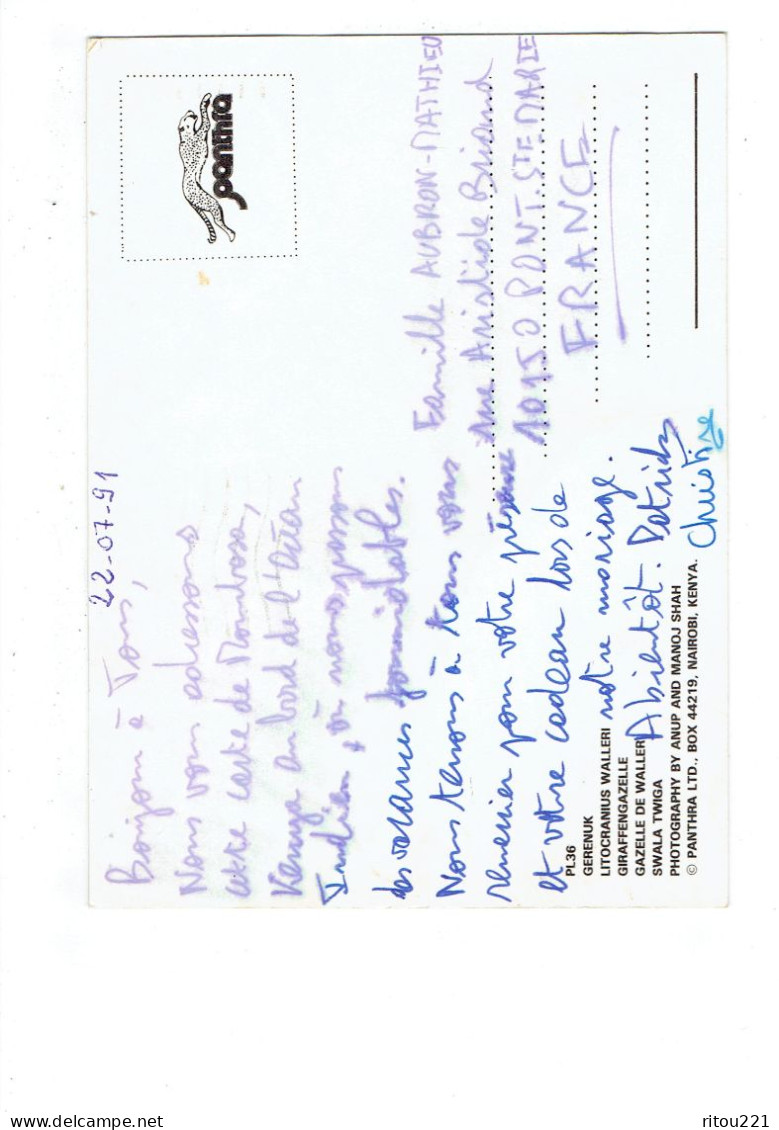 22-07-91
Bonjour à Tous,
Nous vous adressons
cette carte de Mombasa,
Kenya au bord de l'Océan
Indien, où nous passons
des vacances formidables.
Nous tenons à tous vous
remercier pour votre présence
et votre cadeau lors de
notre mariage.
Abientôt. Patrick
Christine
panthra
Famille AUBRON-MATHIEU
rue Aristide Briand
10150 PONT. STE MARIE
FRANCE
PL36
GERENUK
LITOCRANIUS WALLERI
GIRAFFENGAZELLE
GAZELLE DE WALLER
SWALA TWIGA
PHOTOGRAPHY BY ANUP AND MANOJ SHAH
© PANTHRA LTD., BOX 44219, NAIROBI, KENYA.
ritou221